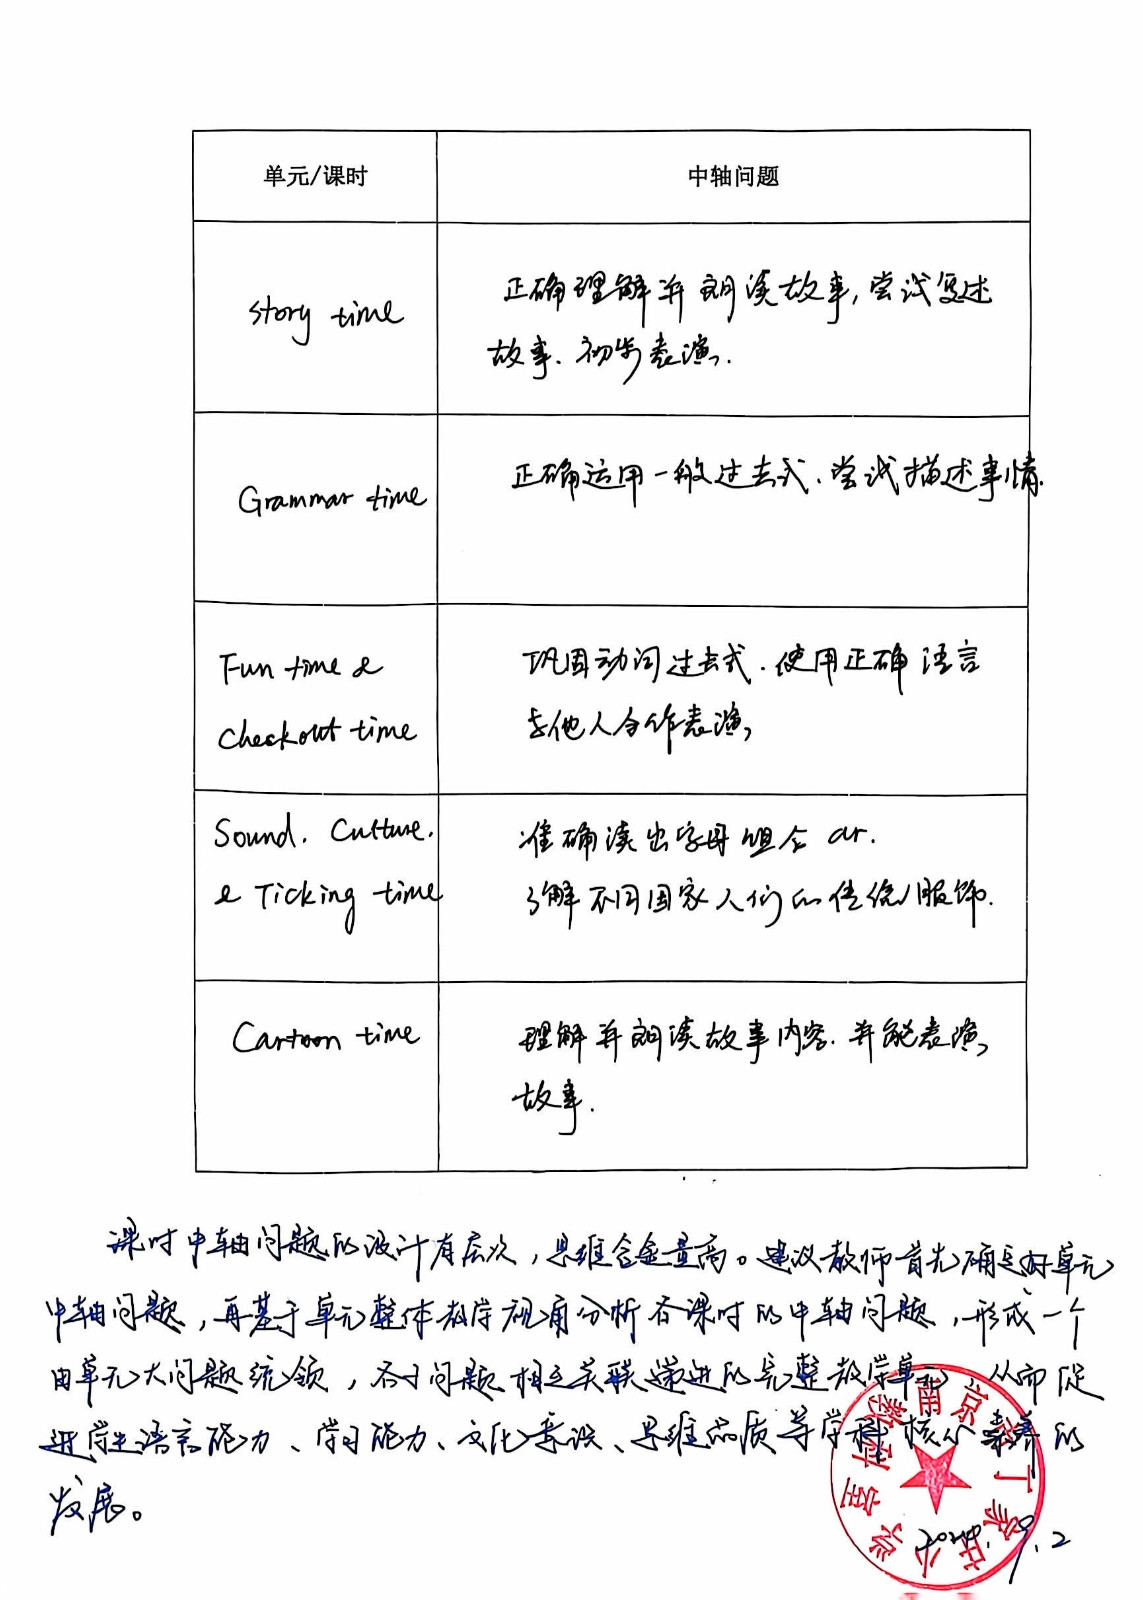 单元/课时
中轴问题
Story time
正确理解并朗读故事,尝试复述
故事.初步表演.
Grammar time
正确运用一般过去式.尝试描述事情.
Fun time &
Checkout time
巩固动词过去式.使用正确语言
与他人合作表演
Sound. Culture.
& Ticking time
准确读出字母组合 ar.
了解不同国家人们的传统服饰.
Cartoon time
理解并朗读故事内容.并能表演
故事.
课时中轴问题的设计有层次,思维含金量高。建议教师首先确定好单元
中轴问题,再基于单元整体教学视角分析各课时的中轴问题,形成一个
由单元大问题统领,各子问题相互关联递进的完整教学单元,从而促
进学生语言能力、学习能力、文化意识、思维品质等学科核心素养的
发展。
南京市丁家庄小学
教科室
2024.9.2